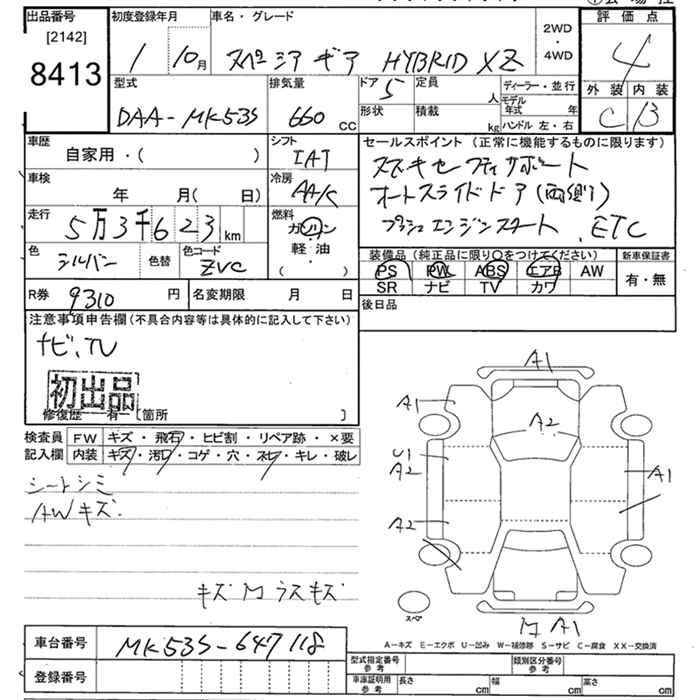 出品番号
[2142]
8413
初度登録年月
1 10月
車名・グレード
スペシア ギア HYBRID XZ
2WD
・
4WD
評価点
4
型式
DAA-MK53S
排気量
660 CC
ドア 5
定員
人
形状
積載
kg
ディーラー・並行
モデル年式 年
ハンドル 左・右
外装 内装
C B
車歴
自家用・( )
シフト
IAT
車検
年 月( 日)
冷房
AA/C
走行
5万3千623km
燃料
ガソリン
軽・油
( ・ )
色
シルバー
色替
色コード
ZVC
セールスポイント (正常に機能するものに限ります)
スズキセーフティサポート
オートスライドドア(両側)
プッシュエンジンスタート、ETC
装備品 (純正品に限り○をつけてください)
新車保証書
PS PW ABS エアB AW
SR ナビ TV カワ
有・無
R券 9310 円
名変期限 月 日
後日品
注意事項申告欄(不具合内容等は具体的に記入して下さい)
ナビ、TV
初出品
修復歴 有 [箇所 ]
検査員
記入欄
FW キズ・飛石・ヒビ割・リペア跡・×要
内装 キズ・汚れ・コゲ・穴・スレ・キレ・破レ
シートシミ
AWキズ
A1
A1
A2
U1
A2
A1
A2
スペア
A1
A-キズ E-エクボ U-凹み W-補修跡 S-サビ C-腐食 XX-交換済
車台番号
MK53S-647118
登録番号
型式指定番号 参考
類別区分番号 参考
車庫証明用 参考
長さ cm
幅 cm
高さ cm